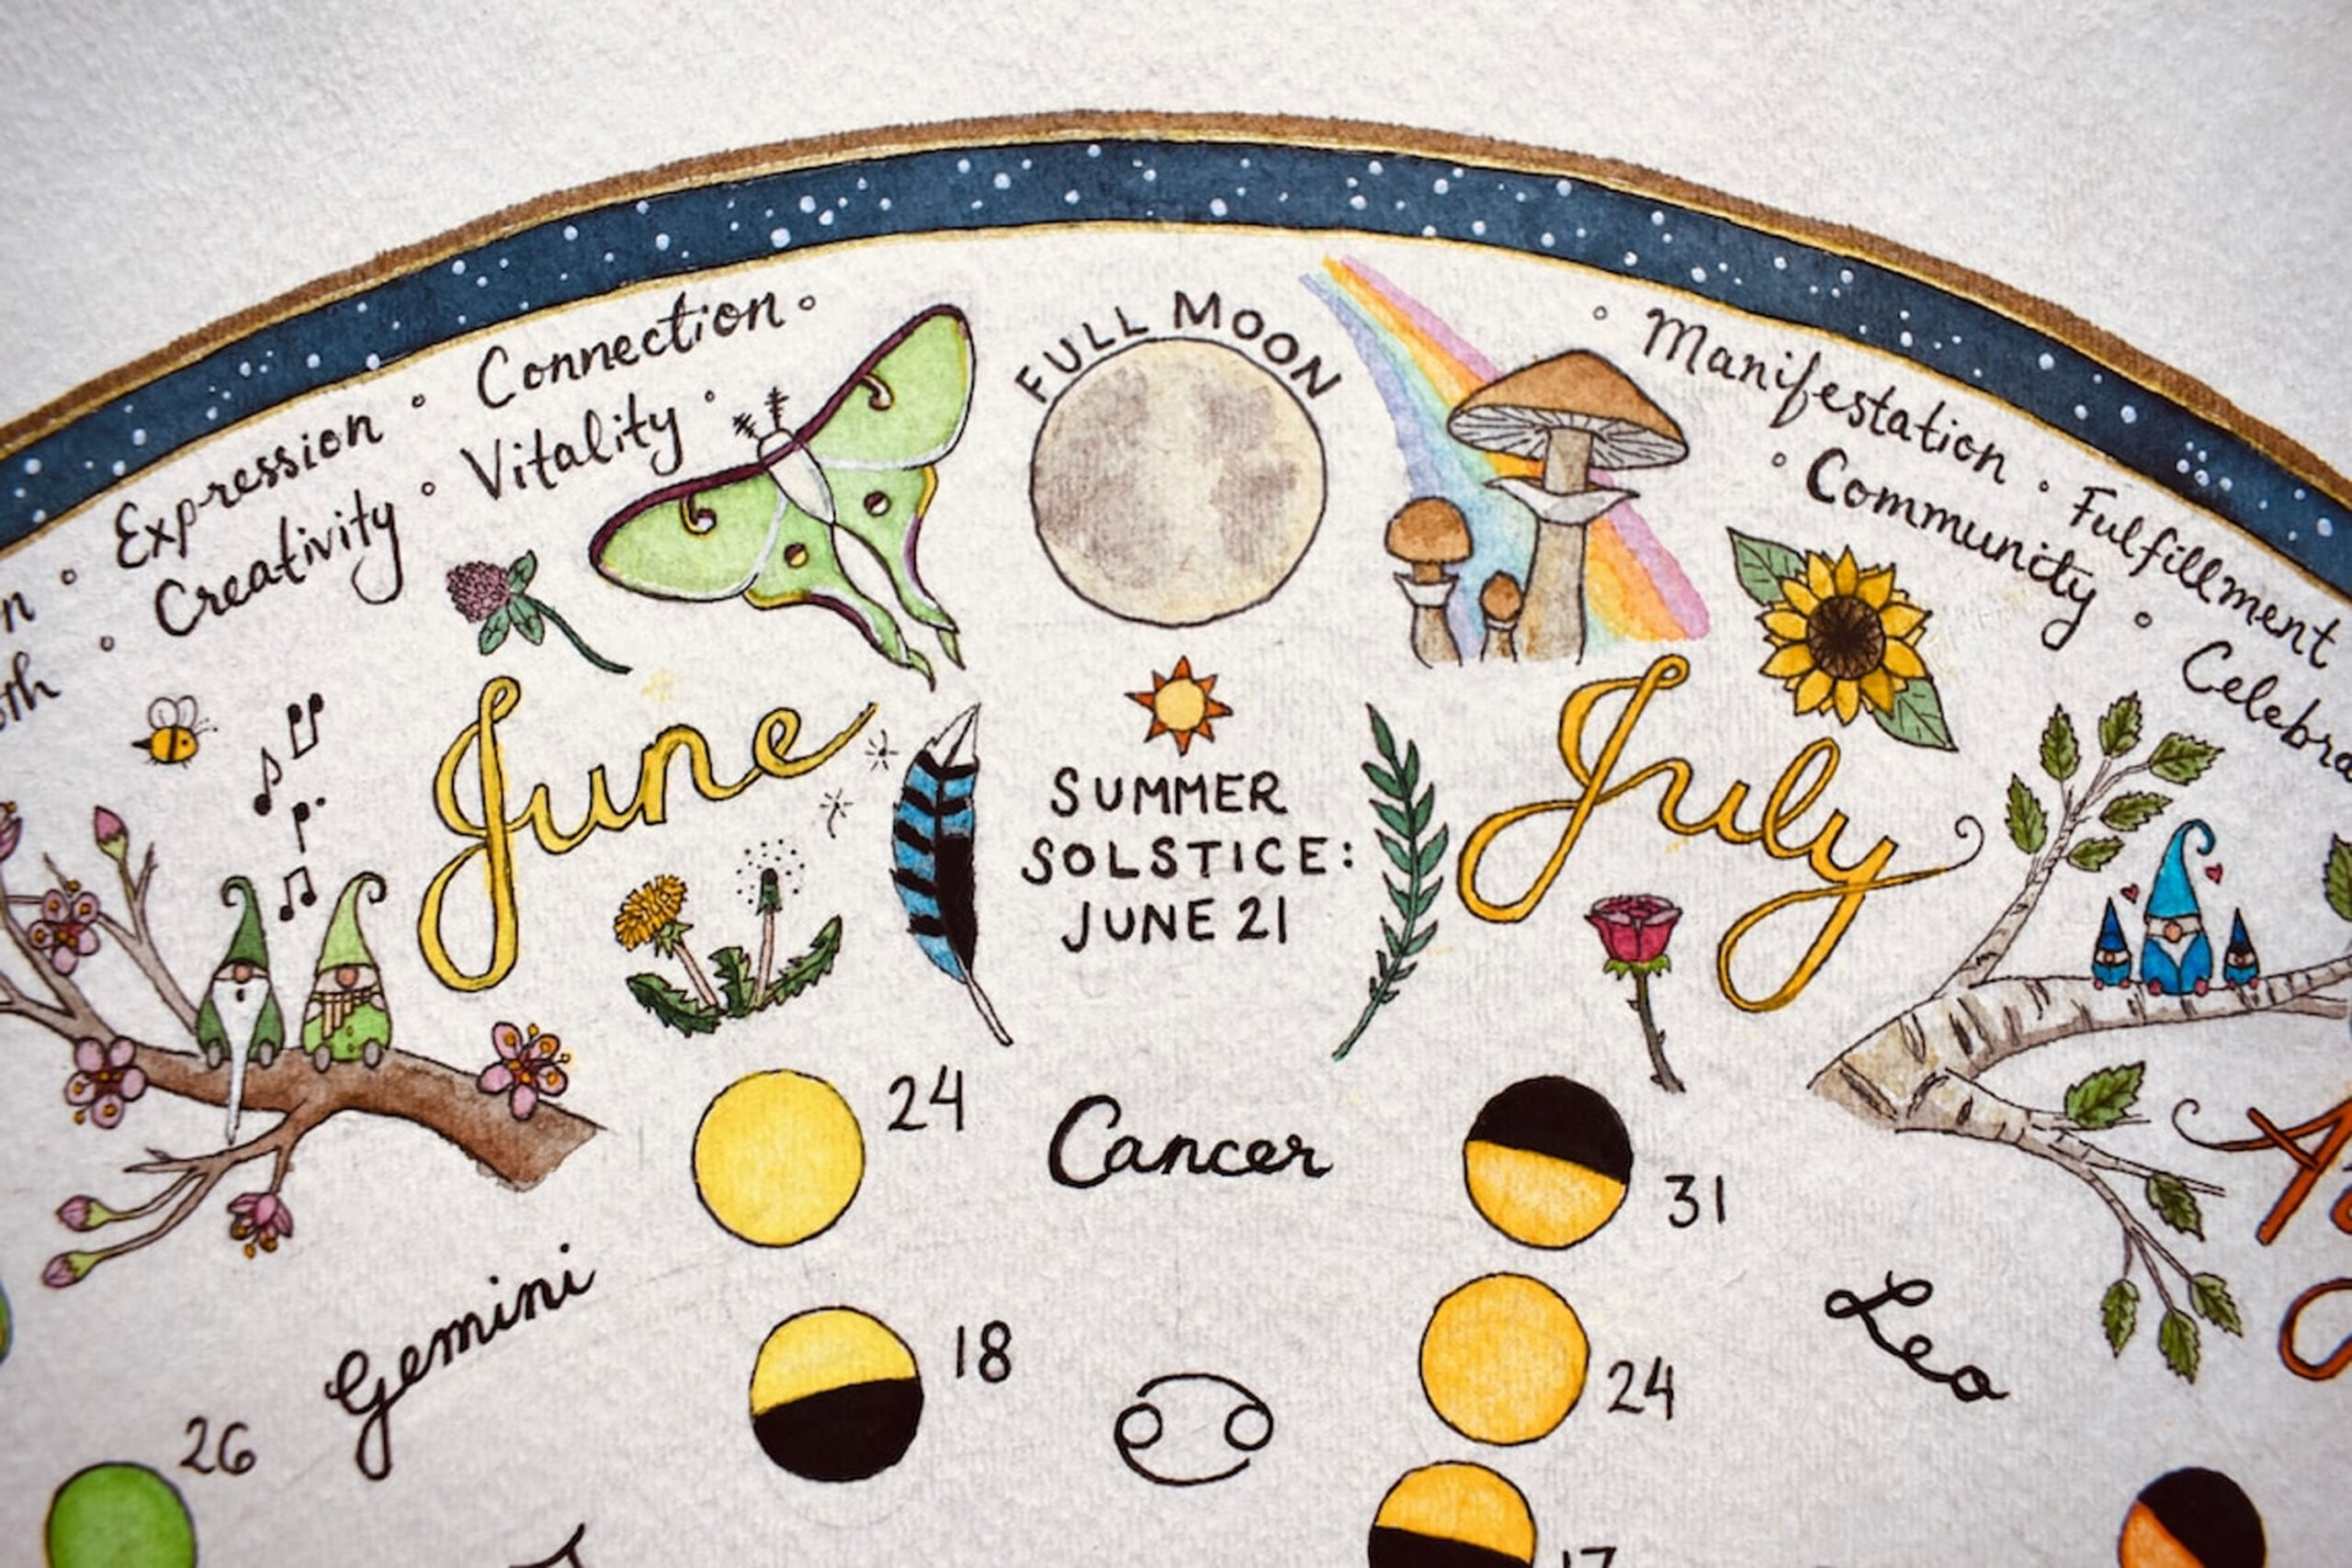 Expression ∘ Connection ∘
Creativity ∘ Vitality ∘
FULL MOON
∘ Manifestation ∘ Fulfillment
∘ Community ∘
June
SUMMER
SOLSTICE:
JUNE 21
July
24
Cancer
31
Gemini
18
24
Leo
26
17